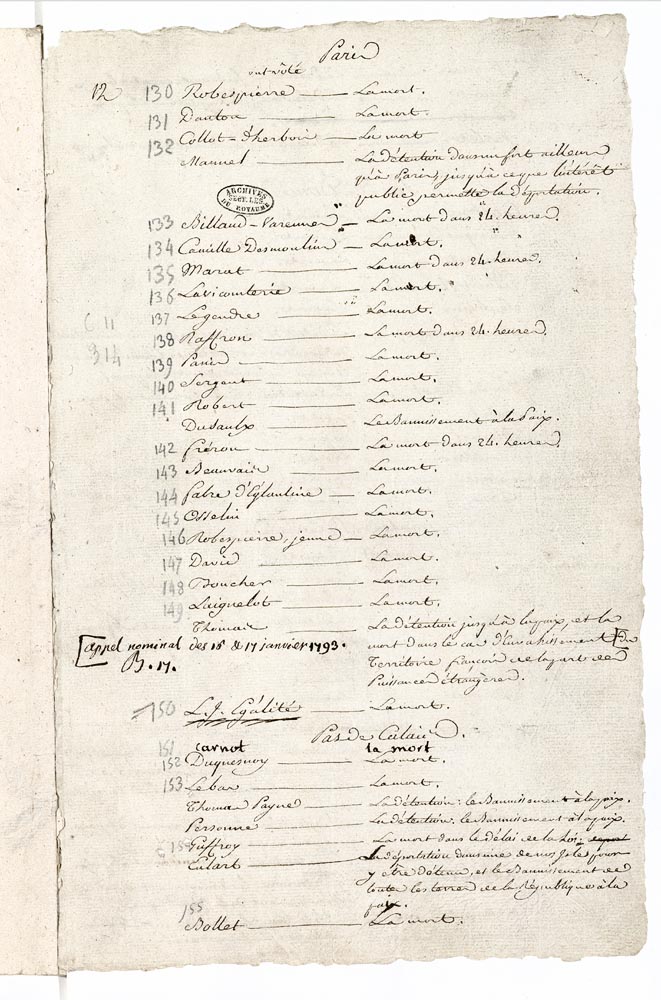 Paris
ont voté
12 130 Robespierre — La mort.
131 Danton — La mort.
132 Collot-d'herbois — La mort
Manuel — La détention dans un fort ailleurs
qu'à Paris, jusqu'à ce que l'intérêt
public permette la déportation.
ARCHIVES
SECT. LEG.
DU ROYAUME
133 Billaud-Varennes — La mort dans 24. heures.
134 Camille Desmoulins — La mort.
135 Marat — La mort dans 24. heures.
136 Lavicomterie — La mort.
C II 137 Legendre — La mort.
314 138 Raffron — La mort dans 24. heures.
139 Panis — La mort.
140 Sergent — La mort.
141 Robert — La mort.
Dusaulx — Le Bannissement à la Paix.
142 fréron — La mort dans 24. heures.
143 Beauvais — La mort.
144 fabre d'Eglantine — La mort.
145 Osselin — La mort.
146 Robespierre, jeune — La mort.
147 David — La mort.
148 Boucher — La mort.
149 Laignelot — La mort.
Thomas — La détention jusqu'à la paix, et la
[appel nominal des 16 & 17 janvier 1793. mort dans le cas d'envahissement du
B. 17. Territoire françois de la part des
Puissances étrangères.
150 L. J. Egalité — La mort.
Pas de Calais.
151 carnot la mort
152 Duquesnoy — La mort.
153 Lebas — La mort.
Thomas Payne — La détention; le Bannissement à la paix.
Personne — La détention, le Bannissement à la paix.
Guffroy — La mort dans le délai de la loi.
Eulart — La déportation dans une de nos Isles pour
y être détenu, et le Bannissement de
toutes les terres de la République à la
paix.
155 Bollet — La mort.